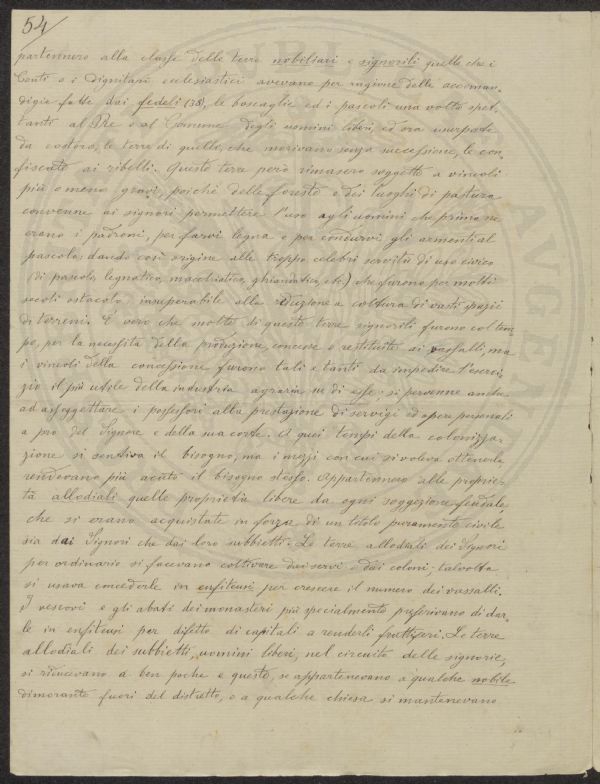 54
partennero alla classe delle terre nobiliari e signorili quelle che i
Conti o i Dignitari ecclesiastici avevano per ragione delle accoman-
digie fatte dai fedeli (38), le boscaglie ed i pascoli una volta spet-
tanti al Re o al Comune degli uomini liberi, ed ora usurpate
da costoro, le terre di quelli, che morivano senza successione, le con-
fiscate ai ribelli. Queste terre però rimasero soggette a vincoli
più o meno gravi, poichè delle foreste e dei luoghi di pastura
convenne ai signori permettere l'uso agli uomini che prima ne
erano i padroni, per farvi legna o per condurvi gli armenti al
pascolo; dando così origine alle troppo celebri servitù di uso civico
(di pascolo, legnatico, macchiatico, ghiandatico, etc) che furono per molti
secoli ostacolo insuperabile alla riduzione a coltura di vasti spazii
di terreni. È vero che molte di queste terre signorili furono col tem-
po, per la necessità della produzione, concesse o restituite ai vassalli, ma
i vincoli della concessione furono tali e tanti da impedire l'eserci-
zio il più utile della industria agraria su di esse; si pervenne anche
ad assoggettare i possessori alla prestazione di servigi ed opere personali
a pro del Signore e della sua corte. A quei tempi della colonizza-
zione si sentiva il bisogno, ma i mezzi con cui si voleva ottenerla
rendevano più acuto il bisogno stesso. Appartennero alle proprie-
tà allodiali quelle proprietà libere da ogni soggezione feudale
che si erano acquistate in forza di un titolo puramente civile
sia dai Signori che dai loro subbietti. Le terre allodiali dei Signori
per ordinario si facevano coltivare dai servi o dai coloni; talvolta
si usava concederle in enfiteusi per crescere il numero dei vassalli.
I vescovi e gli abati dei monasteri più specialmente preferivano di dar-
le in enfiteusi per difetto di capitali a renderli fruttiferi. Le terre
allodiali dei subbietti, uomini liberi, nel circuito delle signorie,
si riducevano a ben poche e queste, se appartenevano a qualche nobile
dimorante fuori del distretto, o a qualche chiesa si mantenevano